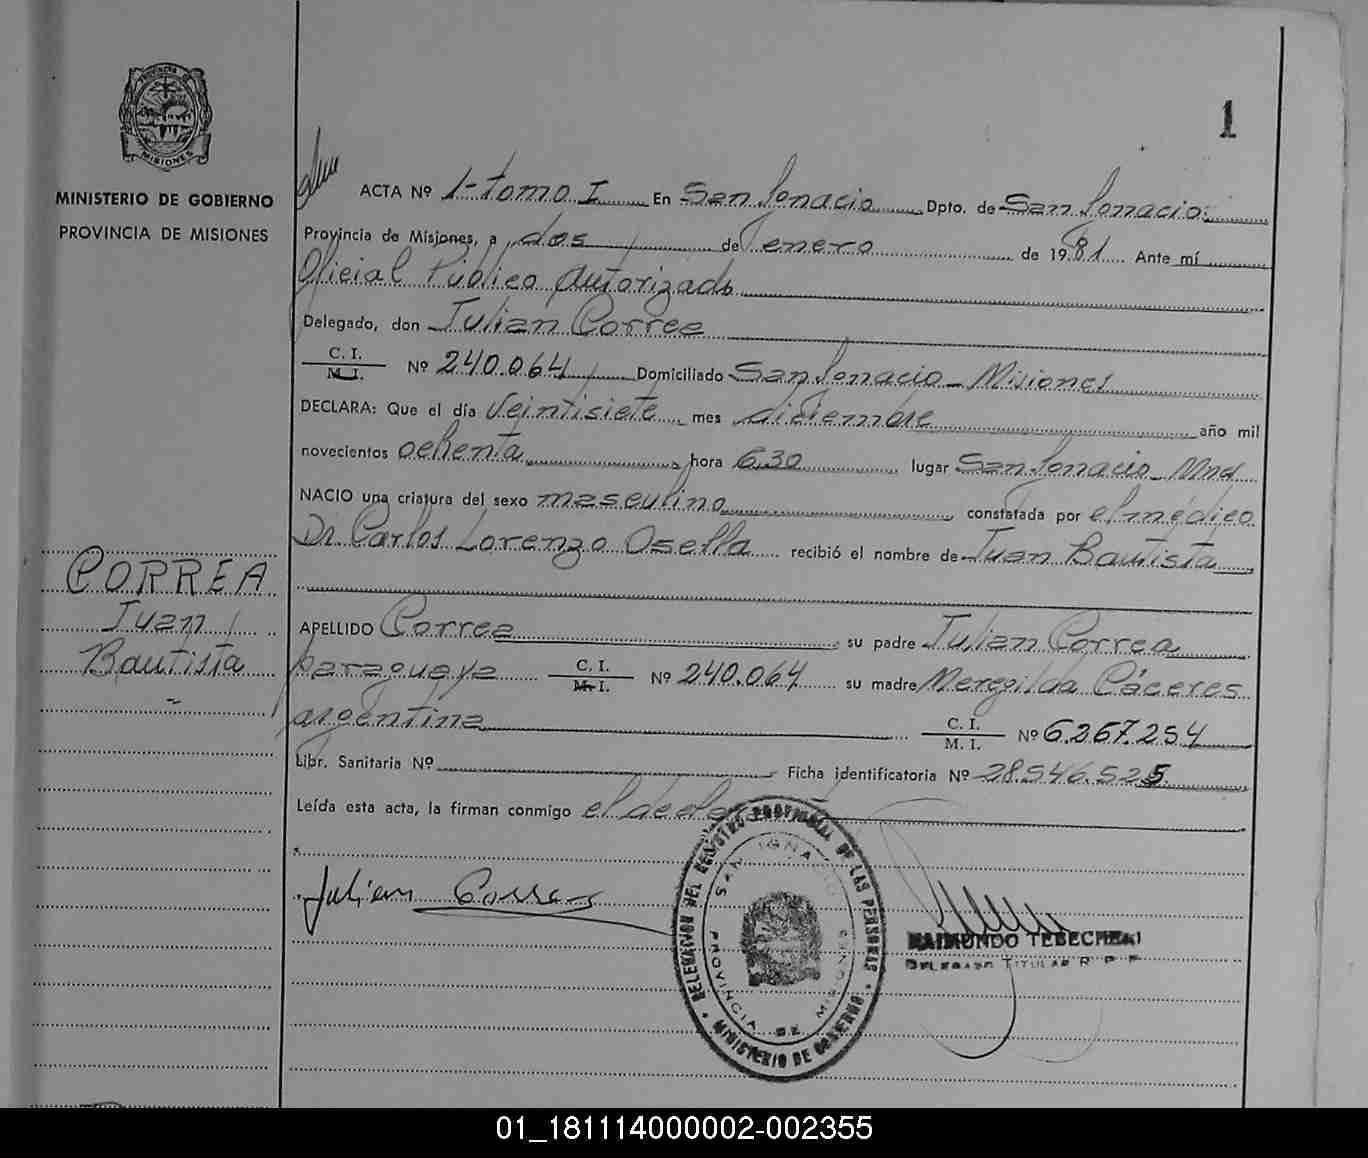 PROVINCIA DE
MISIONES
MINISTERIO DE GOBIERNO
PROVINCIA DE MISIONES
CORREA
Juan
Bautista
1
ACTA Nº 1-tomo I En San Ignacio Dpto. de San Ignacio
Provincia de Misiones, a dos de enero de 1981 Ante mí
Oficial Público Autorizado
Delegado, don Julian Correa
C. I.
M. I. Nº 240.064 Domiciliado San Ignacio - Misiones
DECLARA: Que el día veintisiete mes diciembre año mil
novecientos ochenta hora 6,30 lugar San Ignacio - Mnes
NACIO una criatura del sexo masculino constatada por el médico
Dr. Carlos Lorenzo Osella recibió el nombre de Juan Bautista
APELLIDO Correa su padre Julian Correa
paraguaya C. I.
M. I. Nº 240.064 su madre Meregilda Cáceres
argentina C. I.
M. I. Nº 6.267.254
Libr. Sanitaria Nº Ficha identificatoria Nº 28.546.525
Leída esta acta, la firman conmigo el
Julian Correa
DELEGACION DEL REGISTRO PROVINCIAL DE LAS PERSONAS
SAN IGNACIO
PROVINCIA DE MISIONES
MINISTERIO DE GOBIERNO
RAIMUNDO
DELEGADO TITULAR R. P. P.
01_181114000002-002355